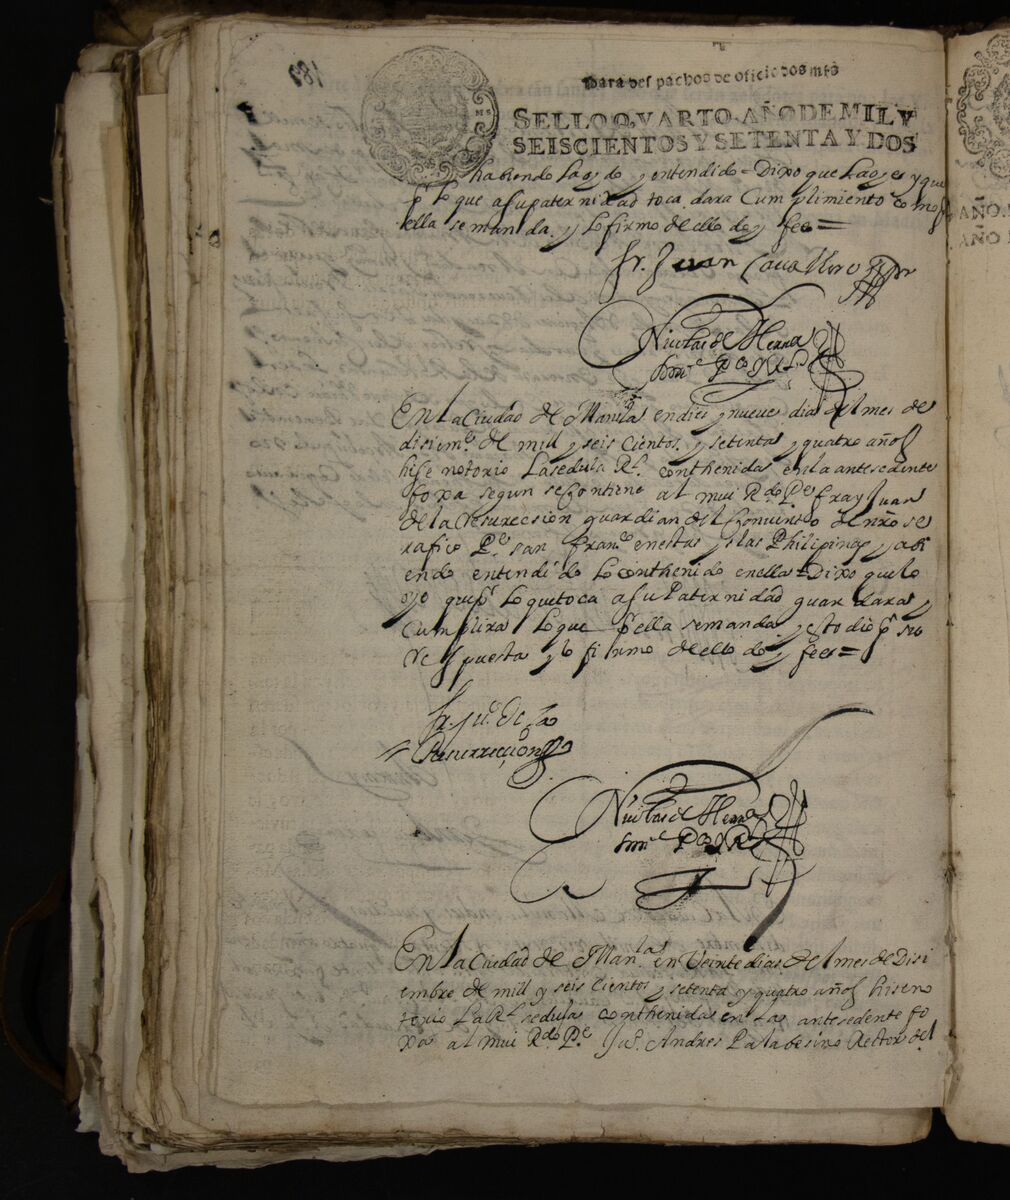 182
Para despachos de oficio dos mrs
SELLO QVARTO AÑO DE MIL Y
SEISCIENTOS Y SETENTA Y DOS
habiendo la oydo y entendido = Dixo que la oye y que
p lo que a su paternidad toca, dara cumplimiento como
ella se manda. y lo firmo de ello doy fee =
fr. Juan Cavallero
Nicolas de Herra
En la Ciudad de Manila en dies y nueve dias del mes de
disiemᵉ de mill y seis cientos y setenta y quatro años
hise notorio la sedula Rˡ. conthenida en la antesedente
foxa segun se contiene al mui Rᵈᵒ Pᵉ fray Juan
de la resureccion guardian del Convento de nrõ se
rafico Pᵉ san franᶜᵒ en estas yslas Philipinas y abi
endo entendido lo conthenido en ella = Dixo que lo
oye que pʳ lo que toca a su Paternidad guardara y
cumplira lo que p ella se manda y esto dio pʳ su
respuesta y lo firmo de ello doy fee =
fr. Juᵒ de la
Resurrecçion
Nicolas de Herra
En la Ciudad de Manˡᵃ en Veinte dias del mes de Disi
embre de mill y seis cientos y setenta y quatro años hise no
torio la Rˡ sedula conthenida en la antesedente fo
xa al mui Rᵈᵒ Pᵉ Juᵒ Andres Palabesino Rector del
AÑO
AÑO